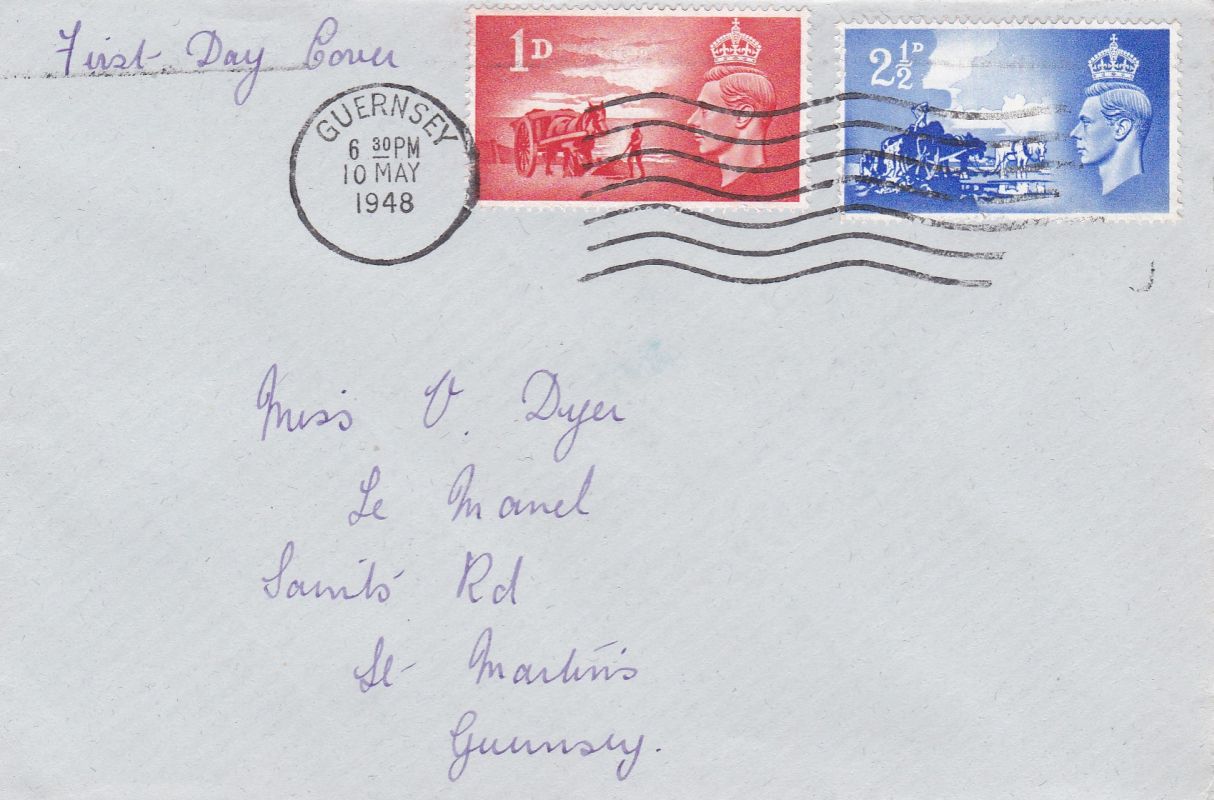 First Day Cover
1D
2½D
GUERNSEY
6 30PM
10 MAY
1948
Miss V. Dyer
Le Manel
Saints Rd
St Martin's
Guernsey.